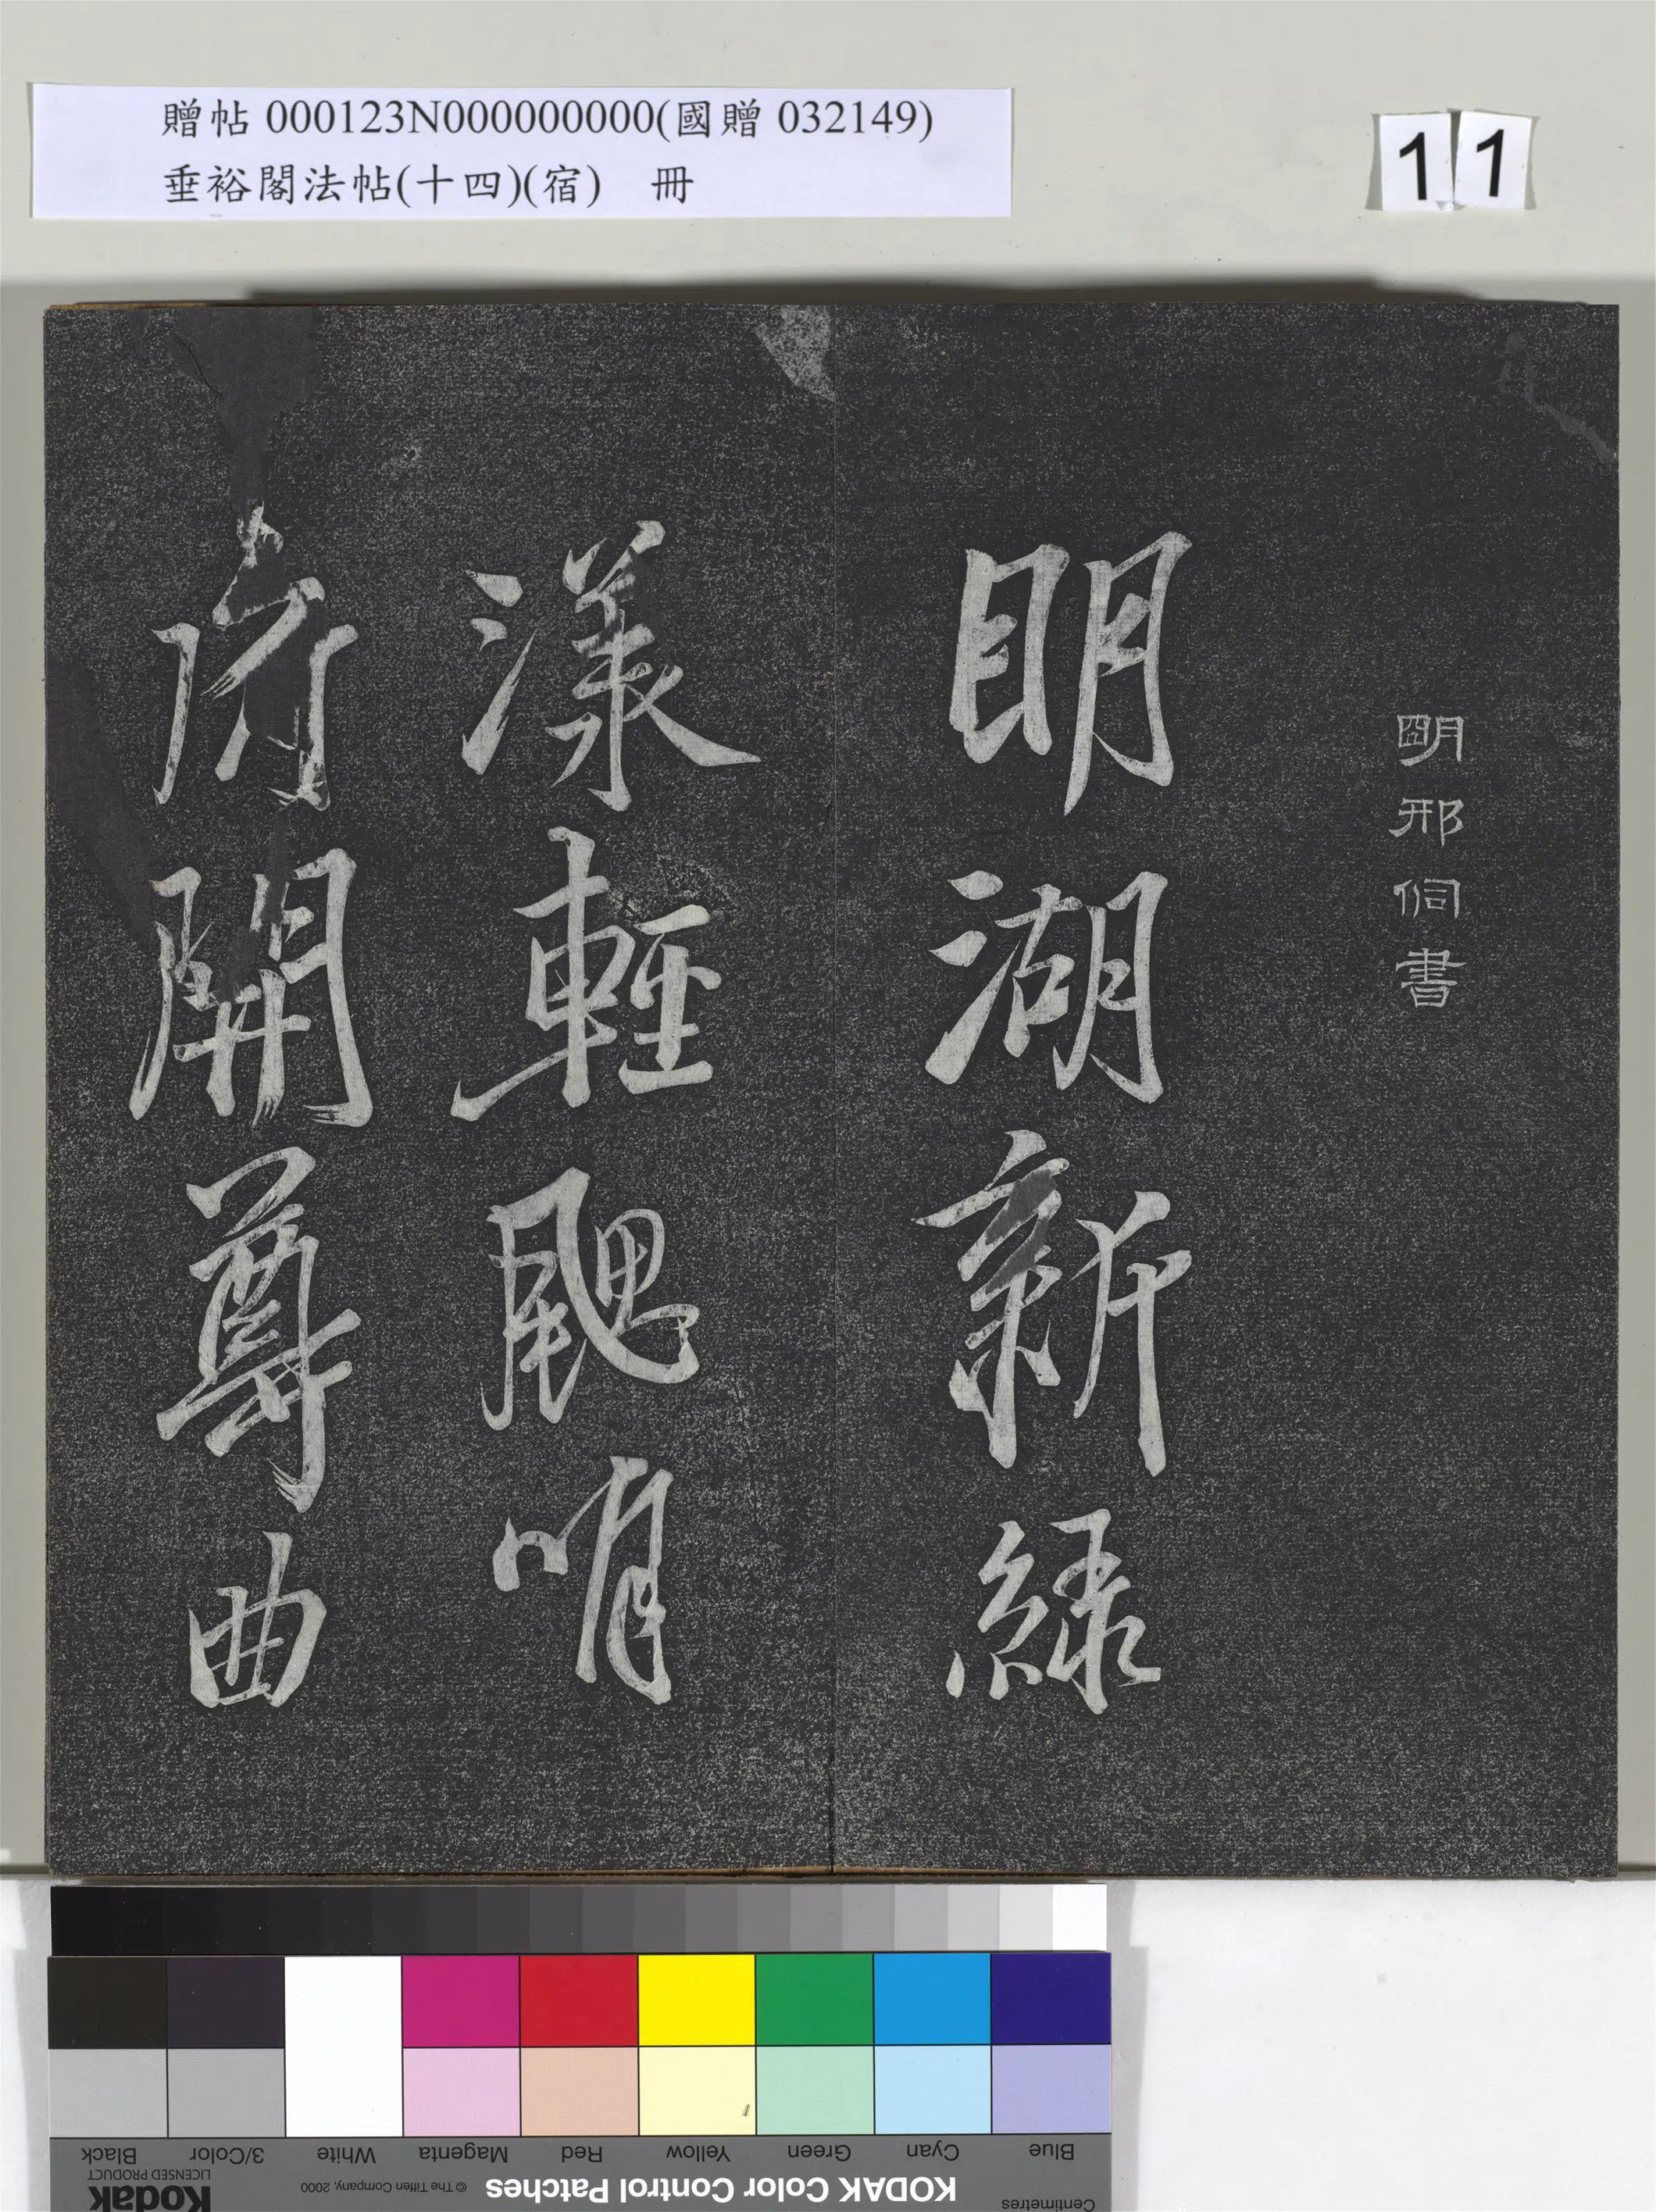 贈帖 000123N000000000(國贈 032149)
垂裕閣法帖(十四)(宿) 冊
11
明邢侗書
明湖新綠
漾輕颸
開尊曲
Blue Cyan Green Yellow Red Magenta White 3/Color Black
Centimetres
KODAK Color Control Patches
© The Tiffen Company, 2000
Kodak
LICENSED PRODUCT